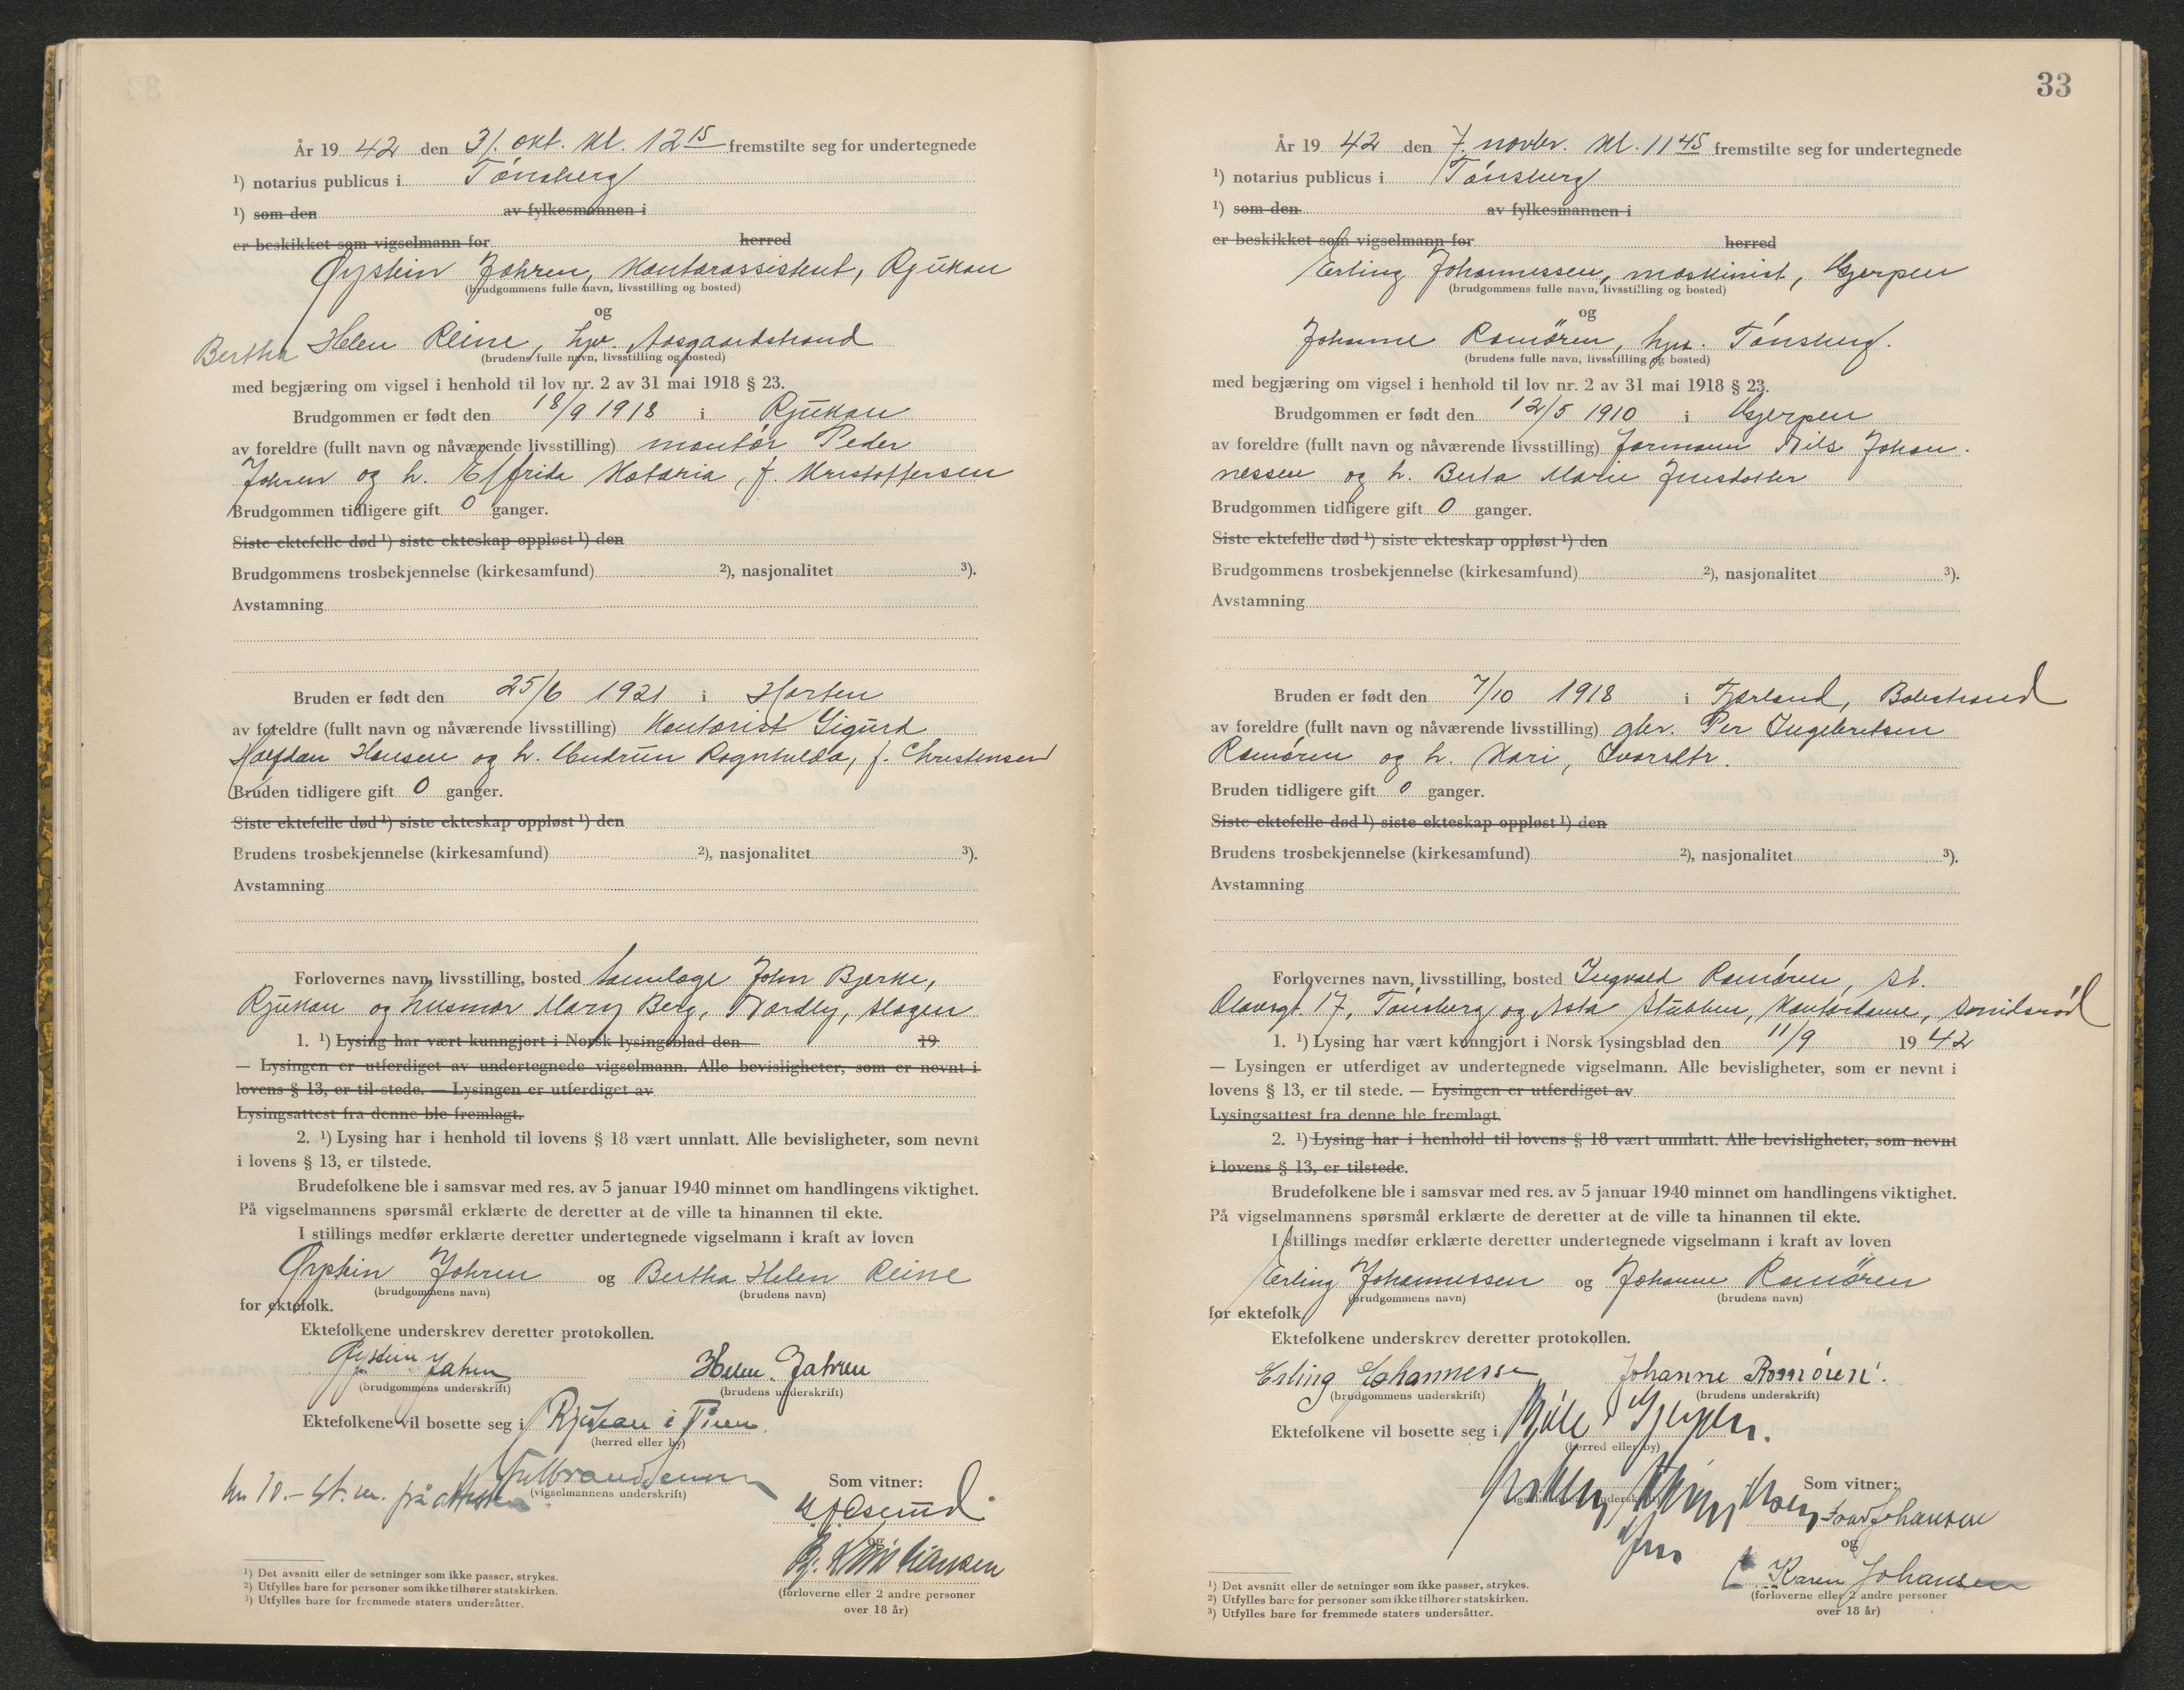 År 19 42 den 31. okt. kl. 12 15 fremstilte seg for undertegnede
¹) notarius publicus i Tønsberg
¹) som den av fylkesmannen i
er beskikket som vigselmann for herred
Øystein Jahren, kontorassistent, Rjukan
(brudgommens fulle navn, livsstilling og bosted)
og
Bertha Helen Reine, hjv. Aasgaardstrand
(brudens fulle navn, livsstilling og bosted)
med begjæring om vigsel i henhold til lov nr. 2 av 31 mai 1918 § 23.
Brudgommen er født den 18/9 1918 i Rjukan
av foreldre (fullt navn og nåværende livsstilling) montør Peder
Jahren og h. Elfrida Kataria, f. Kristoffersen
Brudgommen tidligere gift 0 ganger.
Siste ektefelle død ¹) siste ekteskap oppløst ¹) den
Brudgommens trosbekjennelse (kirkesamfund) ²), nasjonalitet ³).
Avstamning
Bruden er født den 25/6 1921 i Horten
av foreldre (fullt navn og nåværende livsstilling) Kontorist Sigurd
Halfdan Hansen og h. Gudrun Ragnhilda, f. Christensen
Bruden tidligere gift 0 ganger.
Siste ektefelle død ¹) siste ekteskap oppløst ¹) den
Brudens trosbekjennelse (kirkesamfund) ²), nasjonalitet ³).
Avstamning
Forlovernes navn, livsstilling, bosted tannlæge John Bjerke,
Rjukan og husmor Mary Berg, Nordby, Slagen
1. ¹) Lysing har vært kunngjort i Norsk lysingsblad den 19
— Lysingen er utferdiget av undertegnede vigselmann. Alle bevisligheter, som er nevnt i
lovens § 13, er til stede. — Lysingen er utferdiget av
Lysingsattest fra denne ble fremlagt.
2. ¹) Lysing har i henhold til lovens § 18 vært unnlatt. Alle bevisligheter, som nevnt
i lovens § 13, er tilstede.
Brudefolkene ble i samsvar med res. av 5 januar 1940 minnet om handlingens viktighet.
På vigselmannens spørsmål erklærte de deretter at de ville ta hinannen til ekte.
I stillings medfør erklærte deretter undertegnede vigselmann i kraft av loven
Øystein Jahren og Bertha Helen Reine
(brudgommens navn) (brudens navn)
for ektefolk.
Ektefolkene underskrev deretter protokollen.
Øystein Jahren Helen Jahren
(brudgommens underskrift) (brudens underskrift)
Ektefolkene vil bosette seg i Rjukan i Tinn
(herred eller by)
Kr 10.- st. m. på attesten
(vigselmannens underskrift)
Som vitner:
og
B. Kristiansen
(forloverne eller 2 andre personer
over 18 år)
¹) Det avsnitt eller de setninger som ikke passer, strykes.
²) Utfylles bare for personer som ikke tilhører statskirken.
³) Utfylles bare for fremmede staters undersåtter.
33
År 19 42 den 7. novbr. kl. 11 45 fremstilte seg for undertegnede
¹) notarius publicus i Tønsberg
¹) som den av fylkesmannen i
er beskikket som vigselmann for herred
Erling Johannessen, maskinist, Gjerpen
(brudgommens fulle navn, livsstilling og bosted)
og
Johanne Romøren, hjv. Tønsberg.
(brudens fulle navn, livsstilling og bosted)
med begjæring om vigsel i henhold til lov nr. 2 av 31 mai 1918 § 23.
Brudgommen er født den 12/5 1910 i Gjerpen
av foreldre (fullt navn og nåværende livsstilling) formann Nils Johan-
nessen og h. Berta Marie Jensdotter
Brudgommen tidligere gift 0 ganger.
Siste ektefelle død ¹) siste ekteskap oppløst ¹) den
Brudgommens trosbekjennelse (kirkesamfund) ²), nasjonalitet ³).
Avstamning
Bruden er født den 7/10 1918 i Fjærland, Balestrand
av foreldre (fullt navn og nåværende livsstilling) gbr. Per Ingebretsen
Romøren og h. Kari, Ivarsdtr.
Bruden tidligere gift 0 ganger.
Siste ektefelle død ¹) siste ekteskap oppløst ¹) den
Brudens trosbekjennelse (kirkesamfund) ²), nasjonalitet ³).
Avstamning
Forlovernes navn, livsstilling, bosted Ingvald Romøren, St.
Olavsgt. 17, Tønsberg og Asta Stubben, kontordame, Smidsrød
1. ¹) Lysing har vært kunngjort i Norsk lysingsblad den 11/9 19 42
— Lysingen er utferdiget av undertegnede vigselmann. Alle bevisligheter, som er nevnt i
lovens § 13, er til stede. — Lysingen er utferdiget av
Lysingsattest fra denne ble fremlagt.
2. ¹) Lysing har i henhold til lovens § 18 vært unnlatt. Alle bevisligheter, som nevnt
i lovens § 13, er tilstede.
Brudefolkene ble i samsvar med res. av 5 januar 1940 minnet om handlingens viktighet.
På vigselmannens spørsmål erklærte de deretter at de ville ta hinannen til ekte.
I stillings medfør erklærte deretter undertegnede vigselmann i kraft av loven
Erling Johannessen og Johanne Romøren
(brudgommens navn) (brudens navn)
for ektefolk
Ektefolkene underskrev deretter protokollen.
Erling Johannessen Johanne Romøren.
(brudgommens underskrift) (brudens underskrift)
Ektefolkene vil bosette seg i Gjerpen.
(herred eller by)
Som vitner:
Johansen
og
Karen Johansen
(forloverne eller 2 andre personer
over 18 år)
¹) Det avsnitt eller de setninger som ikke passer, strykes.
²) Utfylles bare for personer som ikke tilhører statskirken.
³) Utfylles bare for fremmede staters undersåtter.